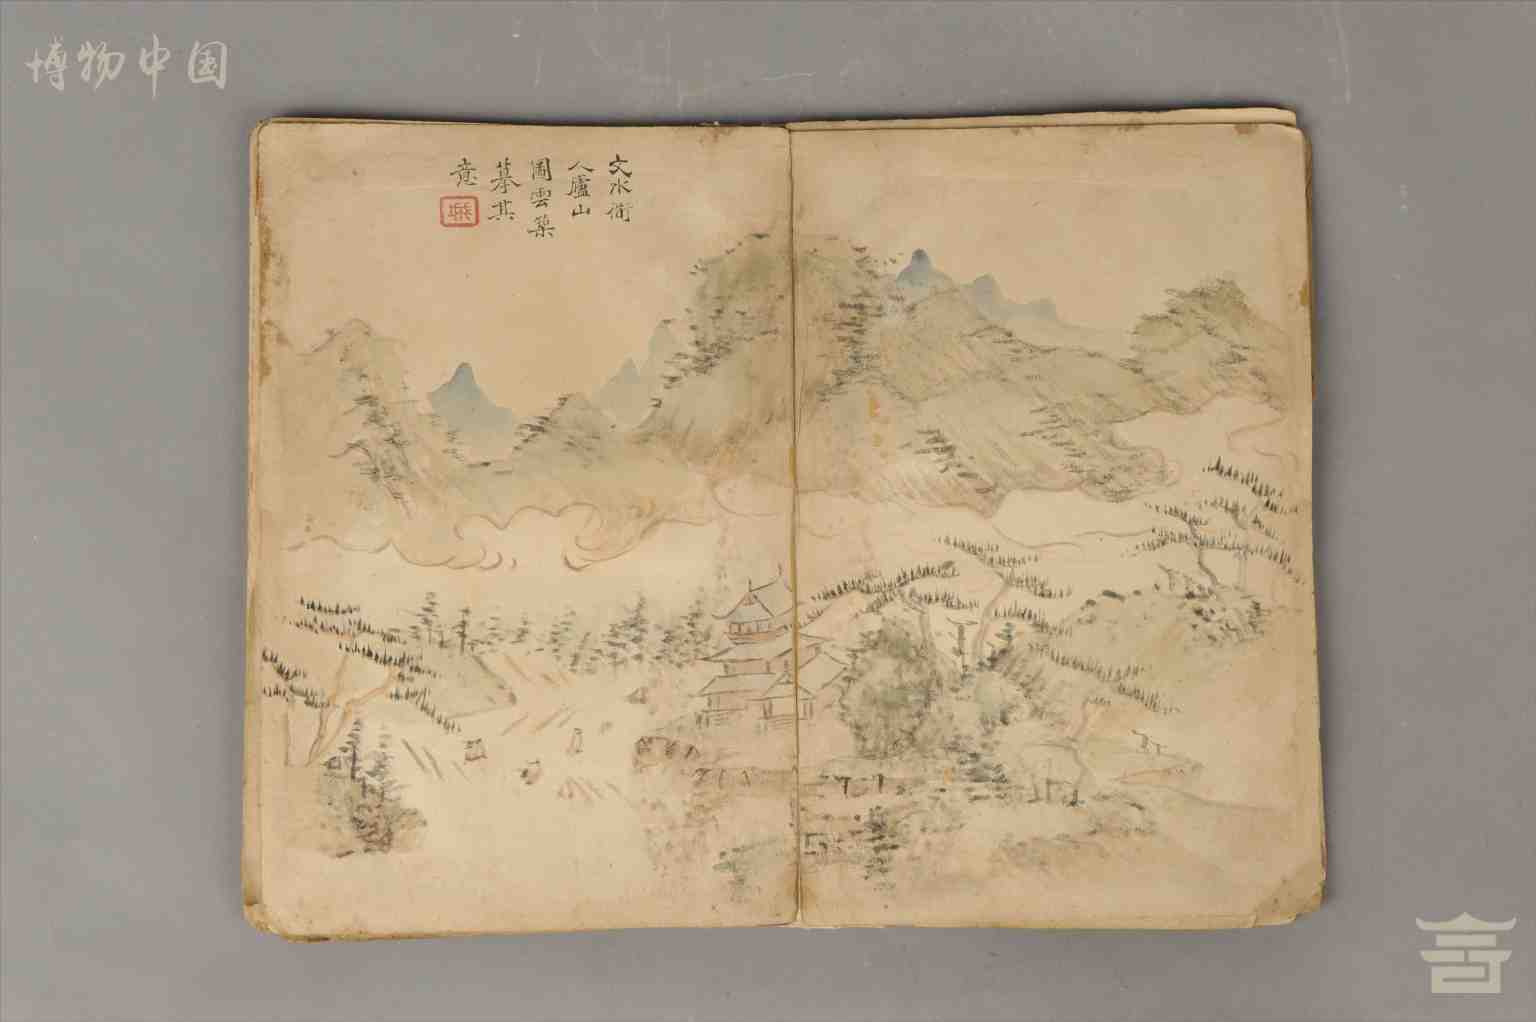 博物中国
文水衛
人廬山
圖雲築
摹其
意